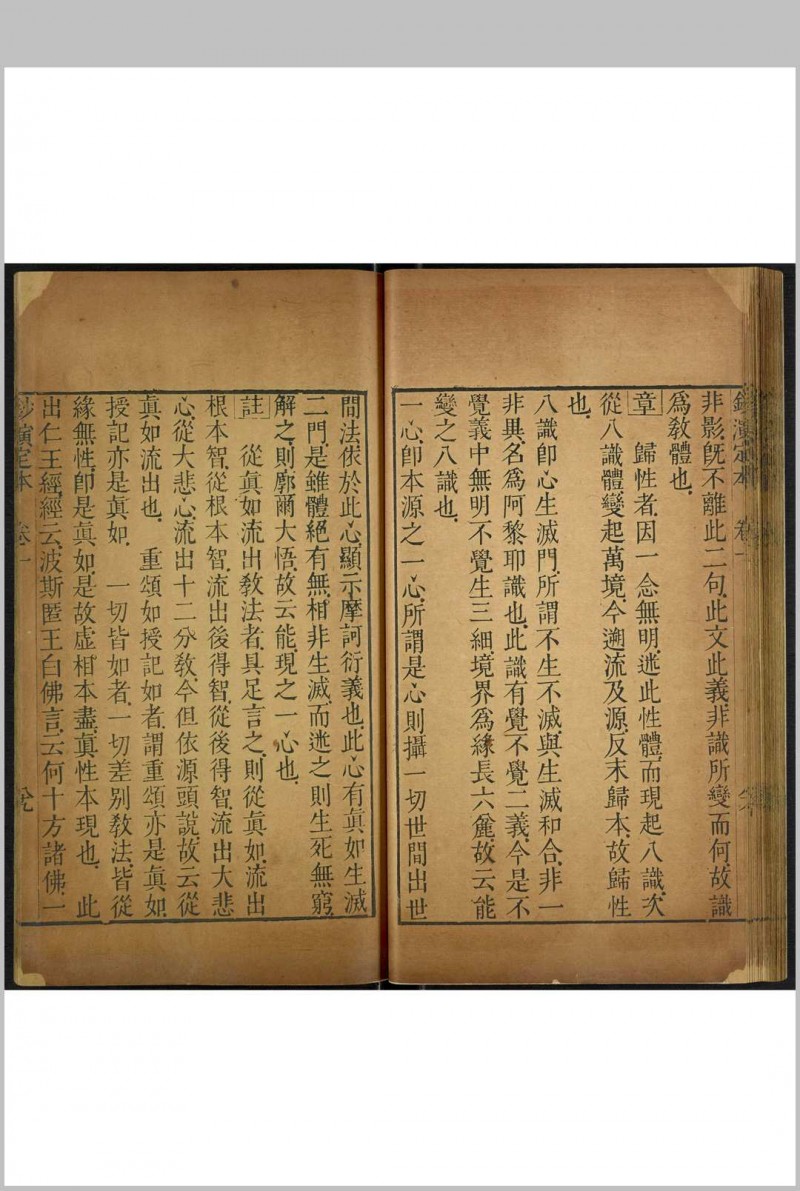 鈔演定本 卷一
非影旣不離此二句此文此義非識所變而何故識
爲敎體也
章 歸性者因一念無明迷此性體而現起八識次
從八識體變起萬境今遡流及源反末歸本故歸性
也
八識卽心生滅門所謂不生不滅與生滅和合非一
非異名爲阿黎耶識也此識有覺不覺二義今是不
覺義中無明不覺生三細境界爲緣長六麤故云能
變之八識也
一心卽本源之一心所謂是心則攝一切世間出世
間法依於此心顯示摩訶衍義也此心有眞如生滅
二門是雖體絕有無相非生滅而迷之則生死無窮
解之則廓爾大悟故云能現之一心也
註 從眞如流出敎法者具足言之則從眞如流出
根本智從根本智流出後得智從後得智流出大悲
心從大悲心流出十二分敎今但依源頭說故云從
眞如流出也 重頌如授記如者謂重頌亦是眞如
授記亦是眞如 一切皆如者一切差別敎法皆從
緣無性卽是眞如是故虛相本盡眞性本現也 此
出仁王經經云波斯匿王白佛言云何十方諸佛一
鈔演定本 卷一